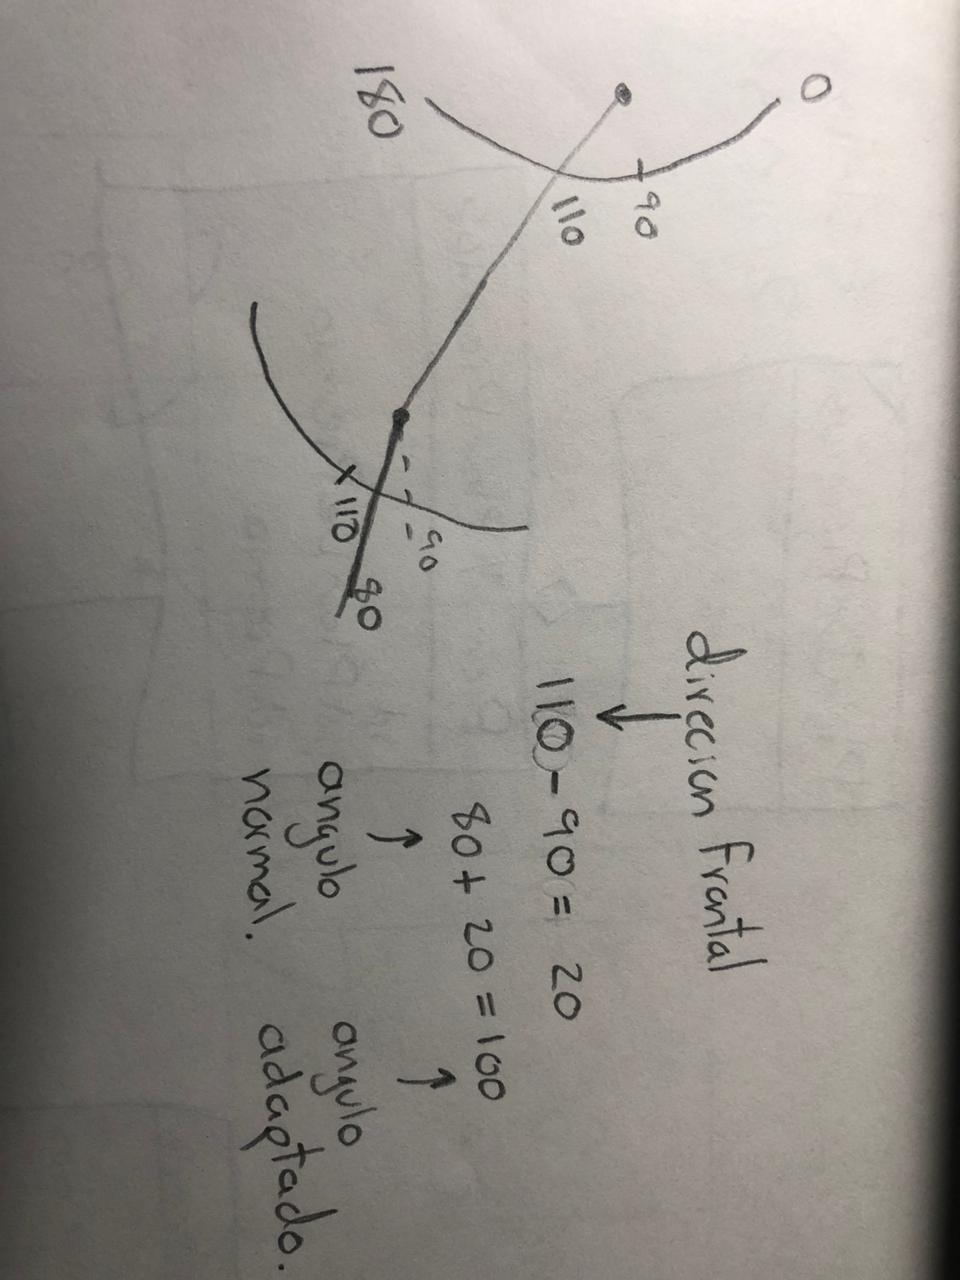 0
180
90
110
90
110
80
direcion frontal
110 - 90 = 20
80 + 20 = 100
angulo
normal.
angulo
adaptado.